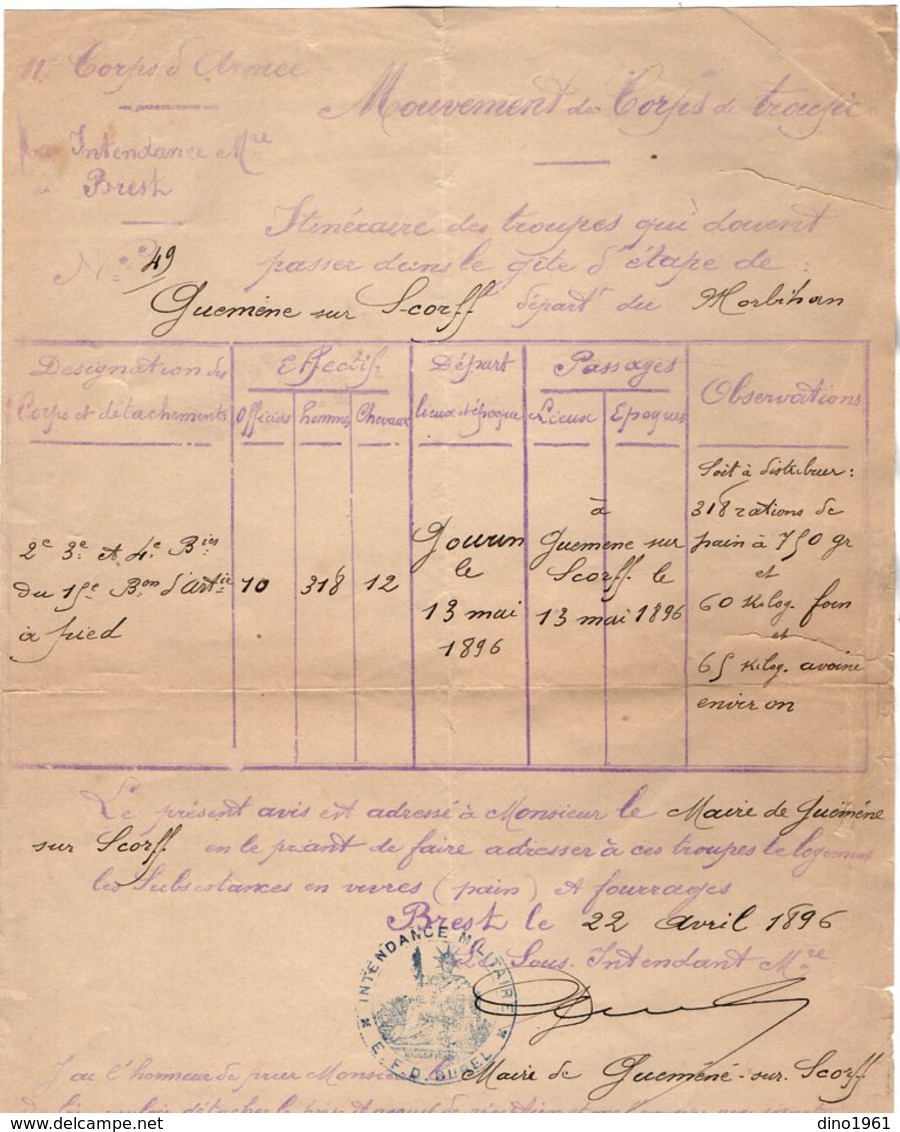 11. Corps d'Armée
Mouvement de Corps de troupe
Intendance Mre
de Brest
No 49
Itinéraire des troupes qui doivent
passer dans le gîte d'étape de :
Guemene sur Scorff départt du Morbihan
Designation des Corps et détachements
Effectif
Officiers hommes Chevaux
Départ
lieux et époque
Passages
Lieux Epoques
Observations
2e 3e et 4e Bies
du 15e Bon d'Artie
à pied
10 318 12
Gourin
le
13 mai
1896
à
Guemene sur
Scorff. le
13 mai 1896
Soit à distribuer :
318 rations de
pain à 750 gr
et
60 kilog. foin
et
65 kilog. avoine
environ
Le présent avis est adressé à Monsieur le Maire de Guéméné
sur Scorff en le priant de faire adresser à ces troupes le logement
les Subsistances en vivres (pain) et fourrages
Brest le 22 avril 1896
Le Sous. Intendant Mre
INTENDANCE MILITAIRE
J'ai l'honneur de prier Monsieur le Maire de Guémené-sur-Scorff
dino1961